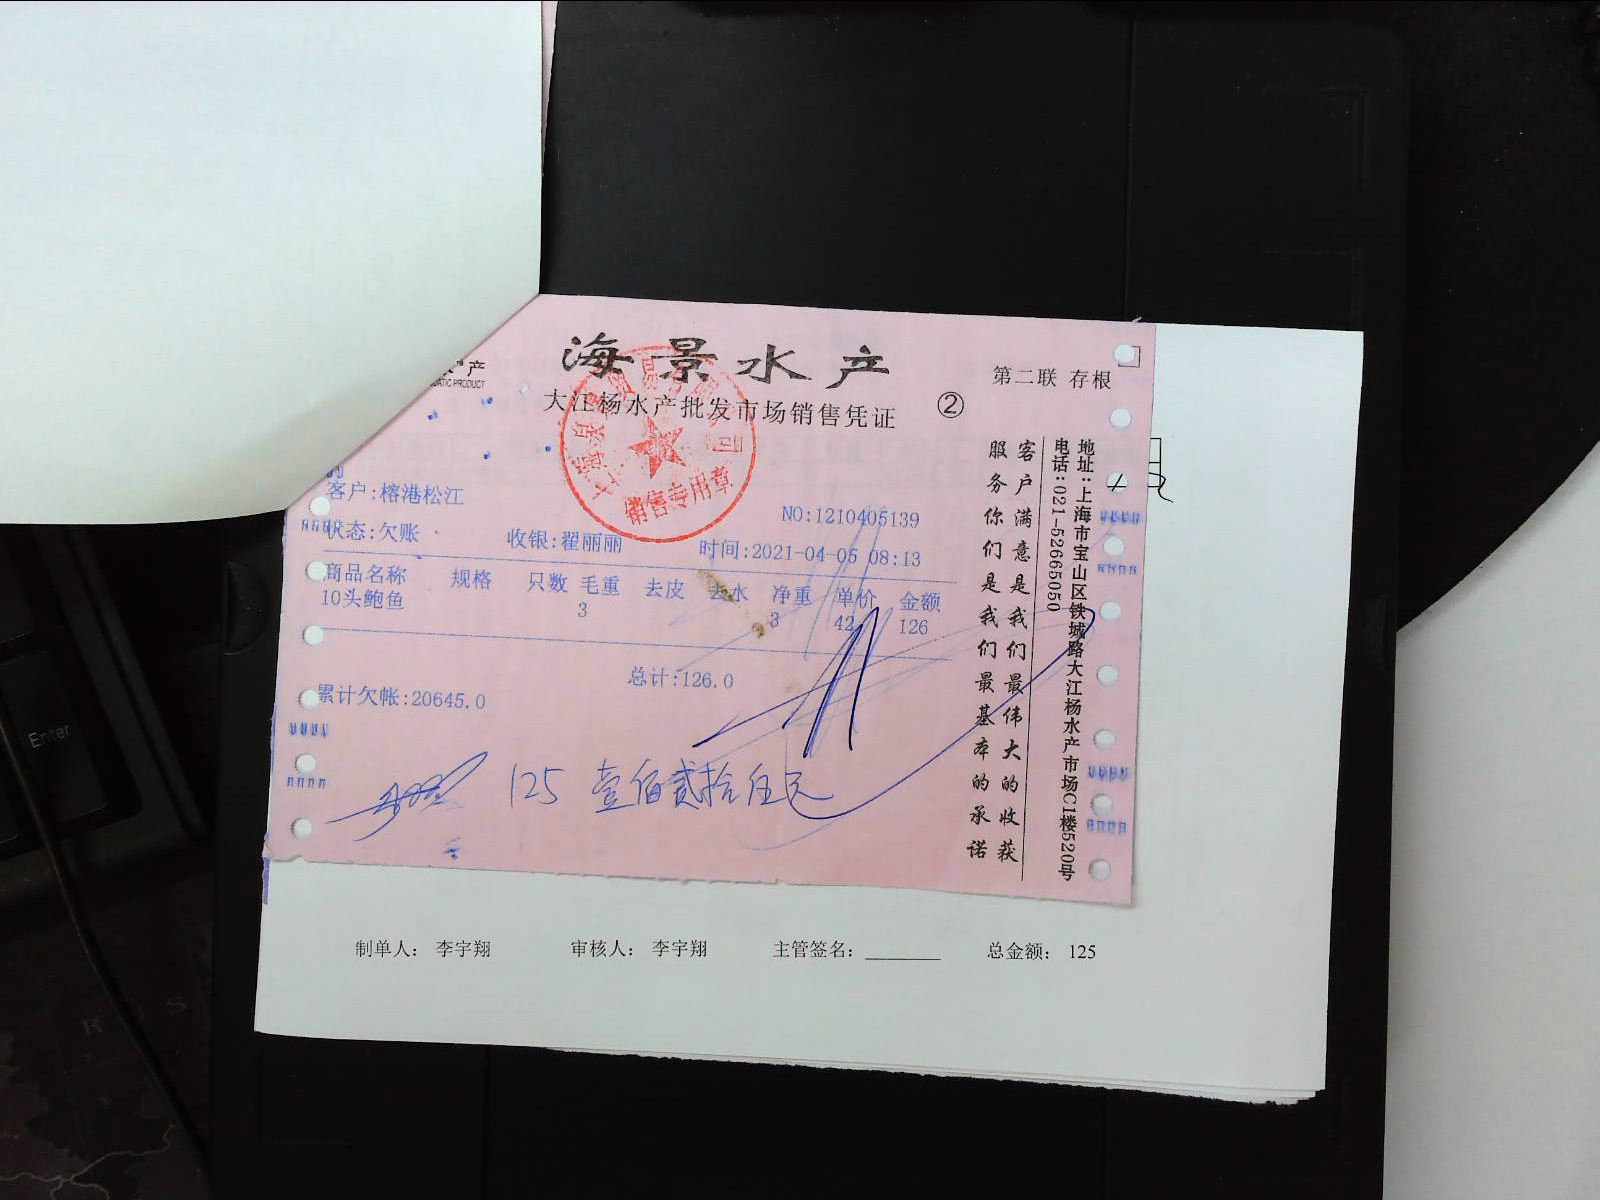 海景水产
水产
大江杨水产批发市场销售凭证
②
第二联 存根
销售专用章
客户:榕港松江
NO:1210405139
状态:欠账
收银:翟丽丽
时间:2021-04-05 08:13
商品名称 规格 只数 毛重 去皮 去水 净重 单价 金额
10头鲍鱼 3 3 42 126
总计:126.0
累计欠帐:20645.0
125 壹佰贰拾伍元
客户满意是我们最伟大的收获
服务你们是我们最基本的承诺
地址:上海市宝山区铁城路大江杨水产市场C1楼520号
电话:021-52665050
制单人: 李宇翔 审核人: 李宇翔 主管签名: 总金额: 125
Enter